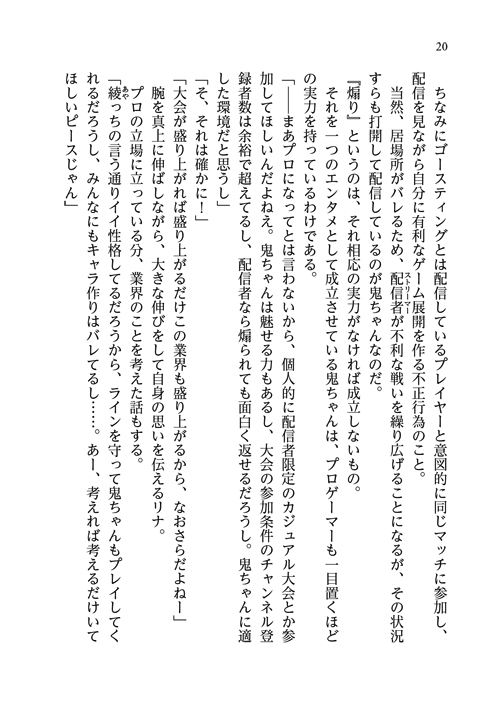 20
ちなみにゴースティングとは配信しているプレイヤーと意図的に同じマッチに参加し、
配信を見ながら自分に有利なゲーム展開を作る不正行為のこと。
当然、居場所がバレるため、配信者が不利な戦いを繰り広げることになるが、その状況
ストリーマー
すらも打開して配信しているのが鬼ちゃんなのだ。
『煽り』というのは、それ相応の実力がなければ成立しないもの。
それを一つのエンタメとして成立させている鬼ちゃんは、プロゲーマーも一目置くほど
の実力を持っているわけである。
「――まあプロになってとは言わないから、個人的に配信者限定のカジュアル大会とか参
加してほしいんだよねえ。鬼ちゃんは魅せる力もあるし、大会の参加条件のチャンネル登
録者数は余裕で超えてるし、配信者なら煽られても面白く返せるだろうし。鬼ちゃんに適
した環境だと思うし」
「そ、それは確かに！」
「大会が盛り上がれば盛り上がるだけこの業界も盛り上がるから、なおさらだよねー」
腕を真上に伸ばしながら、大きな伸びをして自身の思いを伝えるリナ。
プロの立場に立っている分、業界のことを考えた話もする。
「綾っちの言う通りイイ性格してるだろうから、ラインを守って鬼ちゃんもプレイしてく
あや
れるだろうし、みんなにもキャラ作りはバレてるし……。あー、考えれば考えるだけいて
ほしいピースじゃん」